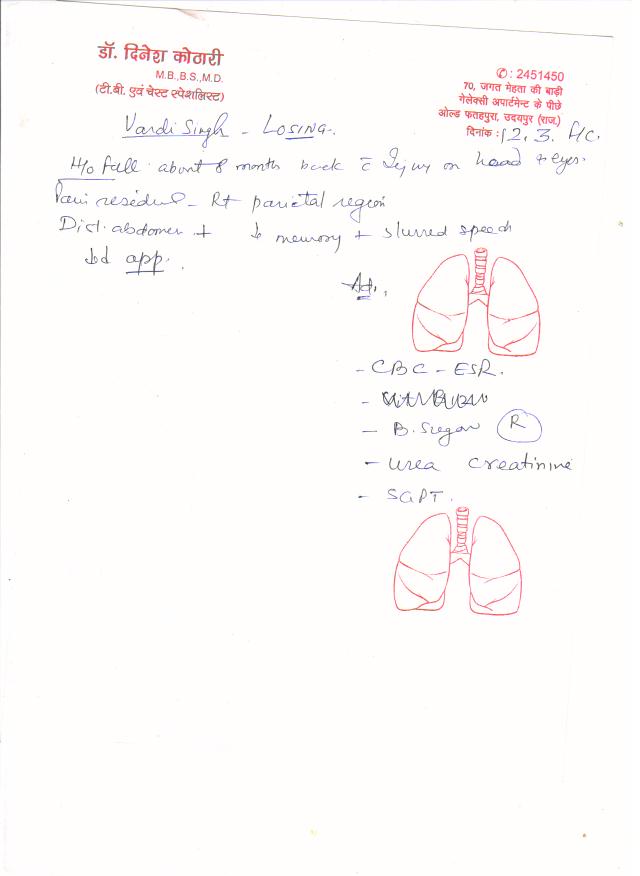 डॉ. दिनेश कोठारी
M.B.,B.S.,M.D.
(टी.बी. एवं चेस्ट स्पेशलिस्ट)
✆: 2451450
70, जगत मेहता की बाड़ी
गेलेक्सी अपार्टमेन्ट के पीछे
ओल्ड फतहपुरा, उदयपुर (राज.)
दिनांक: 12.3.
Vardi Singh - LOSING.
H/o fall about 8 month back c̄ Injury on head + eyes.
Pain residual - Rt parietal region
Dist. abdomen + ↓ memory + slurred speech
↓d app.
Ad.,
- CBC - ESR.
- B. Sugar (R)
- Urea Creatinine
- SGPT.